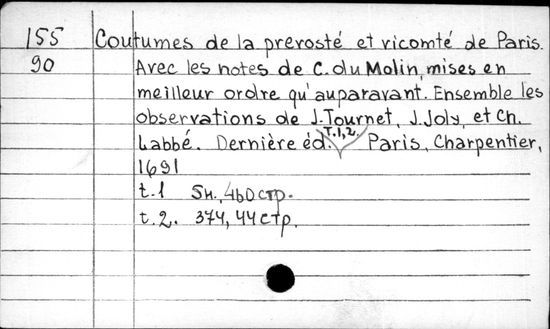 155 Coutumes de la prevosté et vicomté de Paris.
90 Avec les notes de C. du Molin, mises en
meilleur ordre qu'auparavant. Ensemble les
observations de J. Tournet, J. Joly, et Ch.
Labbé. Dernière éd. T.1,2. Paris, Charpentier,
1691
t.1 5н., 460 стр.
t.2. 374, 44 стр.